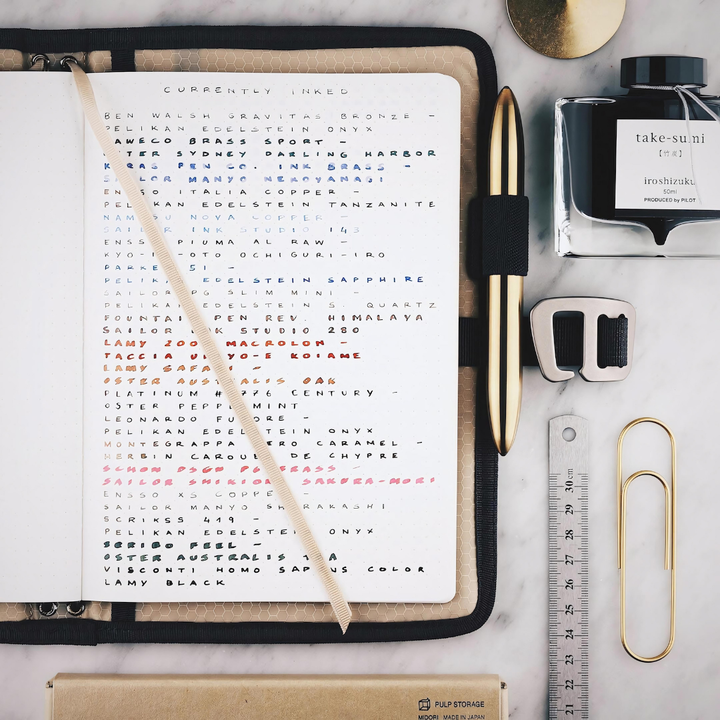 CURRENTLY INKED
BEN WALSH GRAVITAS BRONZE -
PELIKAN EDELSTEIN ONYX
KAWECO BRASS SPORT -
OSTER SYDNEY DARLING HARBOR
KARAS PEN CO. INK BRASS -
SAILOR MANYO NEKOYANAGI
ENSSO ITALIA COPPER -
PELIKAN EDELSTEIN TANZANITE
NAMISU NOVA COPPER -
SAILOR INK STUDIO 143
ENSSO PIUMA AL RAW -
OCHIGURI-IRO
PARKER 51 -
PELIKAN EDELSTEIN SAPPHIRE
SAILOR PG SLIM MINI -
PELIKAN EDELSTEIN S. QUARTZ
FOUNTAIN PEN REV. HIMALAYA
SAILOR INK STUDIO 280
LAMY 2000 MACROLON -
TACCIA UKIYO-E KOIAME
LAMY SAFARI -
OSTER AUSTRALIS OAK
PLATINUM #3776 CENTURY -
OSTER PEPPERMINT
LEONARDO FURORE -
PELIKAN EDELSTEIN ONYX
MONTEGRAPPA ZERO CARAMEL -
HERBIN CAROUBE DE CHYPRE
SCHON DSGN P6 BRASS -
SAILOR SHIKIORI SAKURA-MORI
ENSSO XS COPPER -
SAILOR MANYO SHIRAKASHI
SCRIKSS 419 -
PELIKAN EDELSTEIN ONYX
SCRIBO FEEL -
OSTER AUSTRALIS
VISCONTI HOMO SAPIENS COLOR
LAMY BLACK
take-sumi
【竹炭】
iroshizuku
50ml
PRODUCED by PILOT
30 cm
29
28
27
26
25
24
23
22
21
PULP STORAGE
MIDORI MADE IN JAPAN